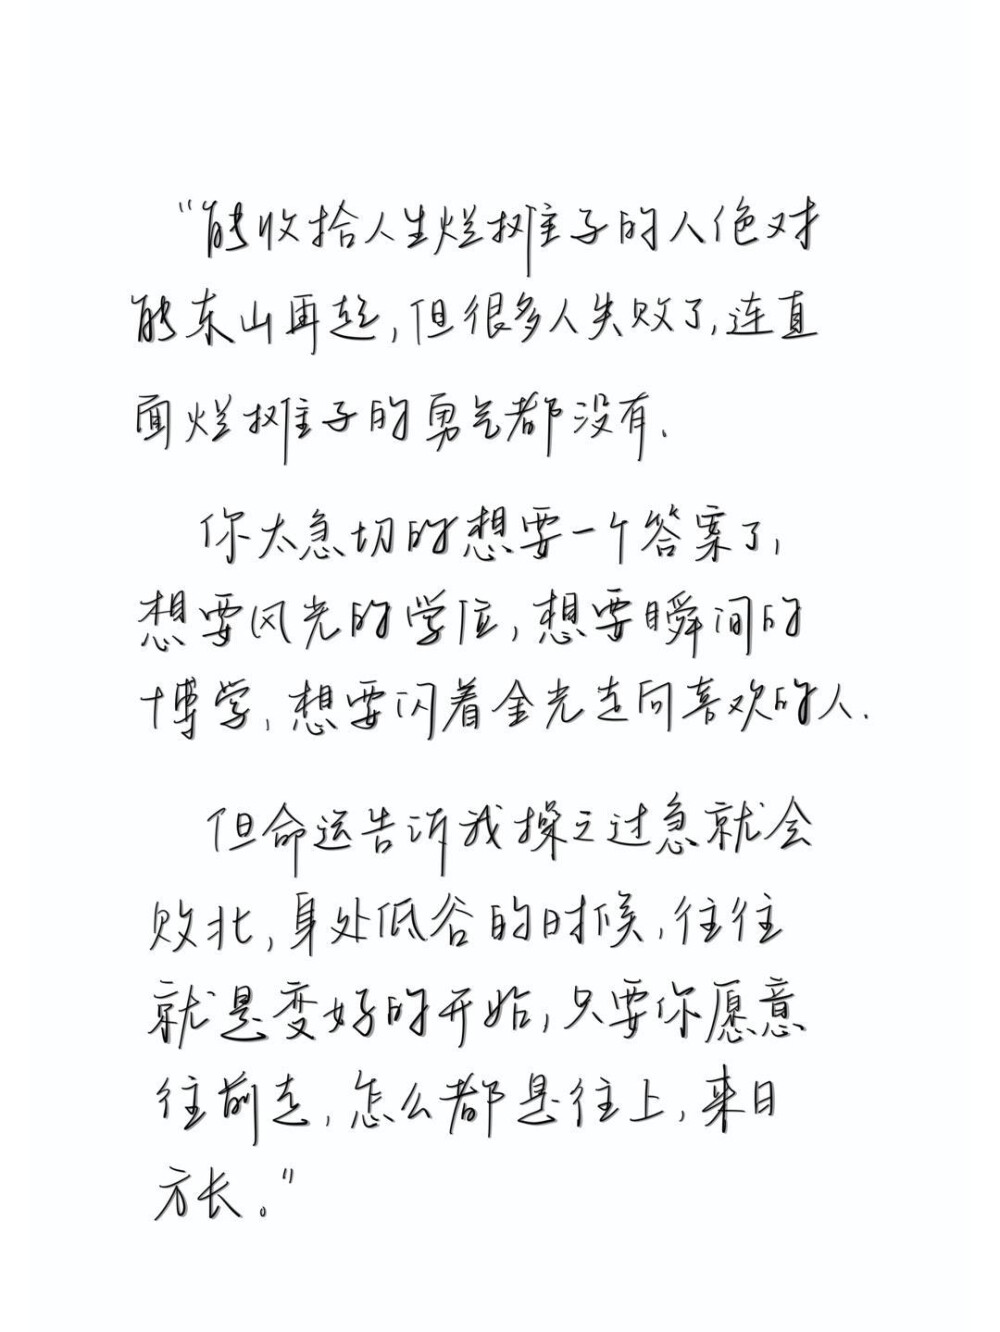 “能收拾人生烂摊子的人绝对
能东山再起,但很多人失败了,连直
面烂摊子的勇气都没有.
你太急切的想要一个答案了,
想要风光的学位,想要瞬间的
博学,想要闪着金光走向喜欢的人.
但命运告诉我操之过急就会
败北,身处低谷的时候,往往
就是变好的开始,只要你愿意
往前走,怎么都是往上,来日
方长。”